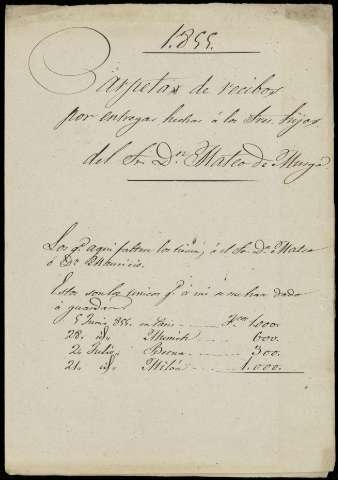 1.855.
Carpetas de recibos
por entregas hechas á los Sres. hijos
del Sr. Dn. Mateo de Murga
Los q.e aqui faltan los tiene, ó el Sr. Dn. Mateo
ó Dn. Mauricio.
Estos son los unicos q.e á mi se me han dado
á guardar
5 Junio 855. en Paris Fcos 1.000.
28. id. Munich 600.
2. Julio Berna 300.
21. id. Milán 1.000.